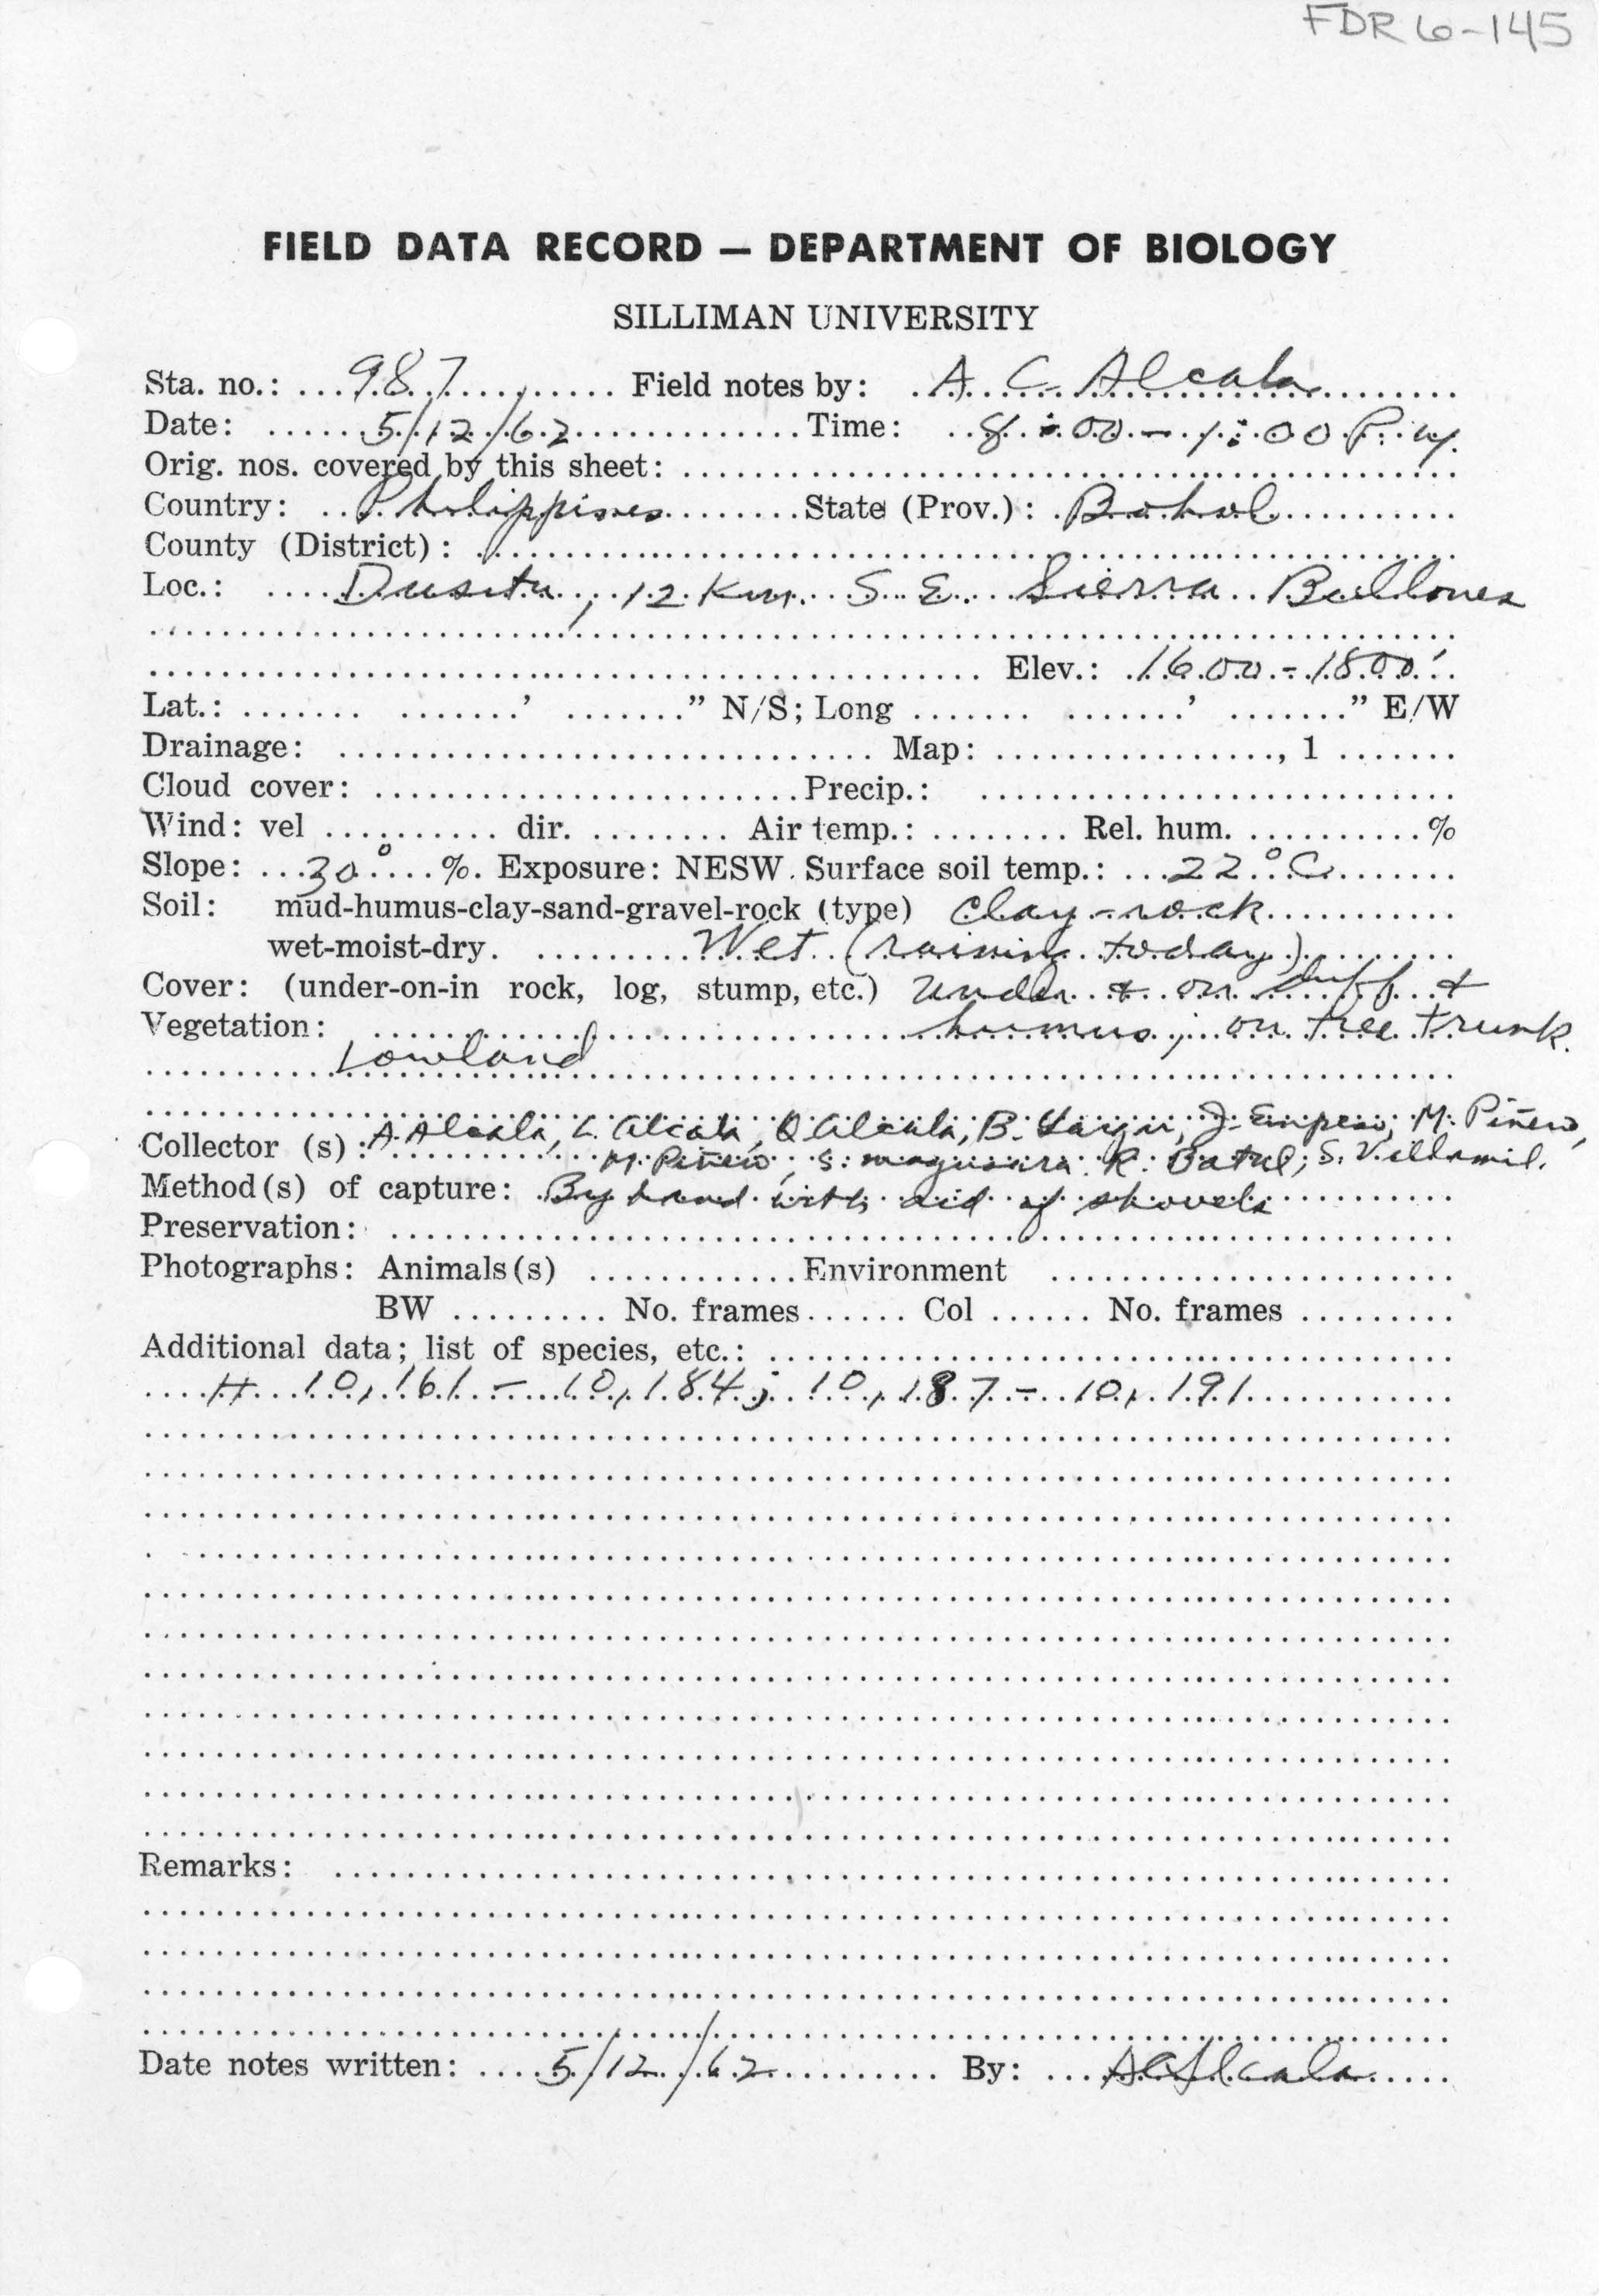 FDR 6-145
FIELD DATA RECORD — DEPARTMENT OF BIOLOGY
SILLIMAN UNIVERSITY
Sta. no.: 987 Field notes by: A. C. Alcala
Date: 5/12/62 Time: 8:00 - 1:00 P.M.
Orig. nos. covered by this sheet:
Country: Philippines State (Prov.): Bohol
County (District):
Loc.: Dusita, 12 Km. S. E. Sierra Bullones
Elev.: 1600-1800'
Lat.: ' " N/S; Long ' " E/W
Drainage: Map: , 1
Cloud cover: Precip.:
Wind: vel dir. Air temp.: Rel. hum. %
Slope: 30° %. Exposure: NESW. Surface soil temp.: 22°C
Soil: mud-humus-clay-sand-gravel-rock (type) Clay-rock
wet-moist-dry. Wet (raining today)
Cover: (under-on-in rock, log, stump, etc.) Under & on duff &
Vegetation: humus; on tree trunk.
Lowland
Collector (s): A. Alcala, L. Alcala, Q. Alcala, B. J. Empeso, M. Piñero,
M. Piñero, S. Magusara R. Batal; S. Villamil.
Method(s) of capture: By hand with aid of shovels
Preservation:
Photographs: Animals(s) Environment
BW No. frames Col No. frames
Additional data; list of species, etc.:
H 10,161 - 10,184; 10,187 - 10,191
Remarks:
Date notes written: 5/12/62 By: ACAlcala